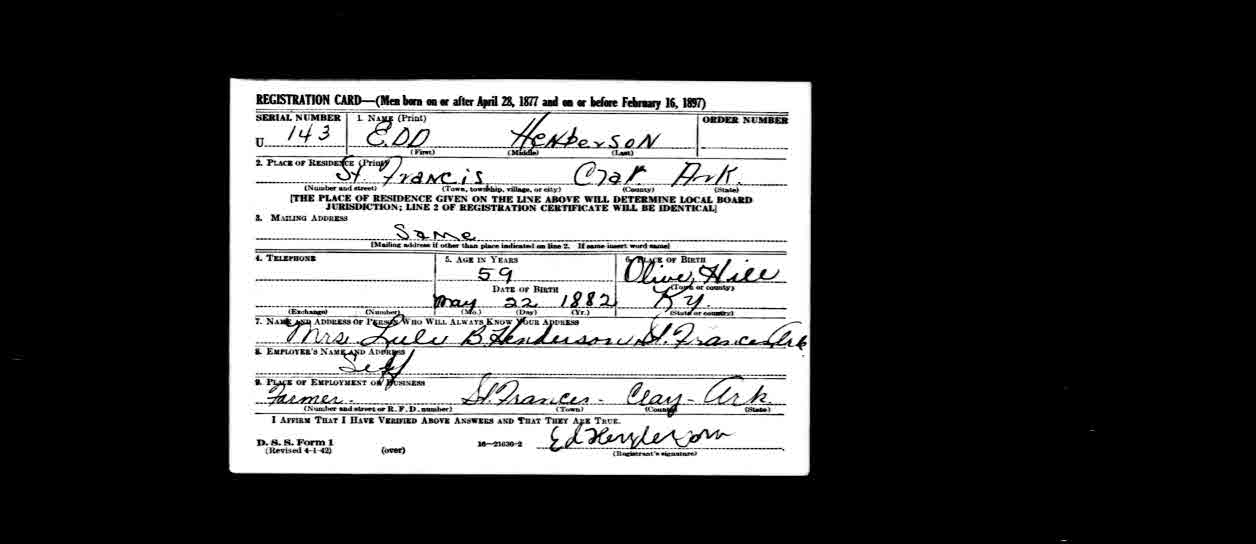 REGISTRATION CARD—(Men born on or after April 28, 1877 and on or before February 16, 1897)
SERIAL NUMBER 1. NAME (Print) ORDER NUMBER
U 143 EDD HENDERSON
(First) (Middle) (Last)
2. PLACE OF RESIDENCE (Print)
St. Francis Clay Ark.
(Number and street) (Town, township, village, or city) (County) (State)
[THE PLACE OF RESIDENCE GIVEN ON THE LINE ABOVE WILL DETERMINE LOCAL BOARD
JURISDICTION; LINE 2 OF REGISTRATION CERTIFICATE WILL BE IDENTICAL]
3. MAILING ADDRESS
Same
[Mailing address if other than place indicated on line 2. If same insert word same]
4. TELEPHONE 5. AGE IN YEARS 6. PLACE OF BIRTH
59 Olive Hill
DATE OF BIRTH (Town or county)
May 22 1882 Ky.
(Exchange) (Number) (Mo.) (Day) (Yr.) (State or country)
7. NAME AND ADDRESS OF PERSON WHO WILL ALWAYS KNOW YOUR ADDRESS
Mrs. Lulu B. Henderson, St. Frances Ark
8. EMPLOYER'S NAME AND ADDRESS
Self
9. PLACE OF EMPLOYMENT OR BUSINESS
Farmer - St. Frances - Clay - Ark.
(Number and street or R. F. D. number) (Town) (County) (State)
I AFFIRM THAT I HAVE VERIFIED ABOVE ANSWERS AND THAT THEY ARE TRUE.
D. S. S. Form 1
(Revised 4-1-42) (over) 16—21630-2 Ed Henderson
(Registrant's signature)